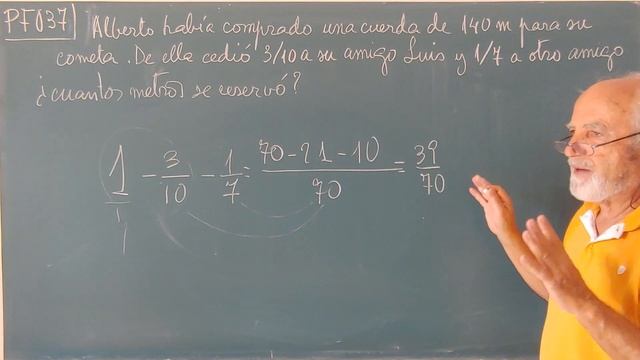 PF037 Alberto había comprado una cuerda de 140 m para su
cometa. De ella cedió 3/10 a su amigo Luis y 1/7 a otro amigo
¿cuantos metros se reservó?
1/1 - 3/10 - 1/7 = (70 - 21 - 10)/70 = 39/70
1